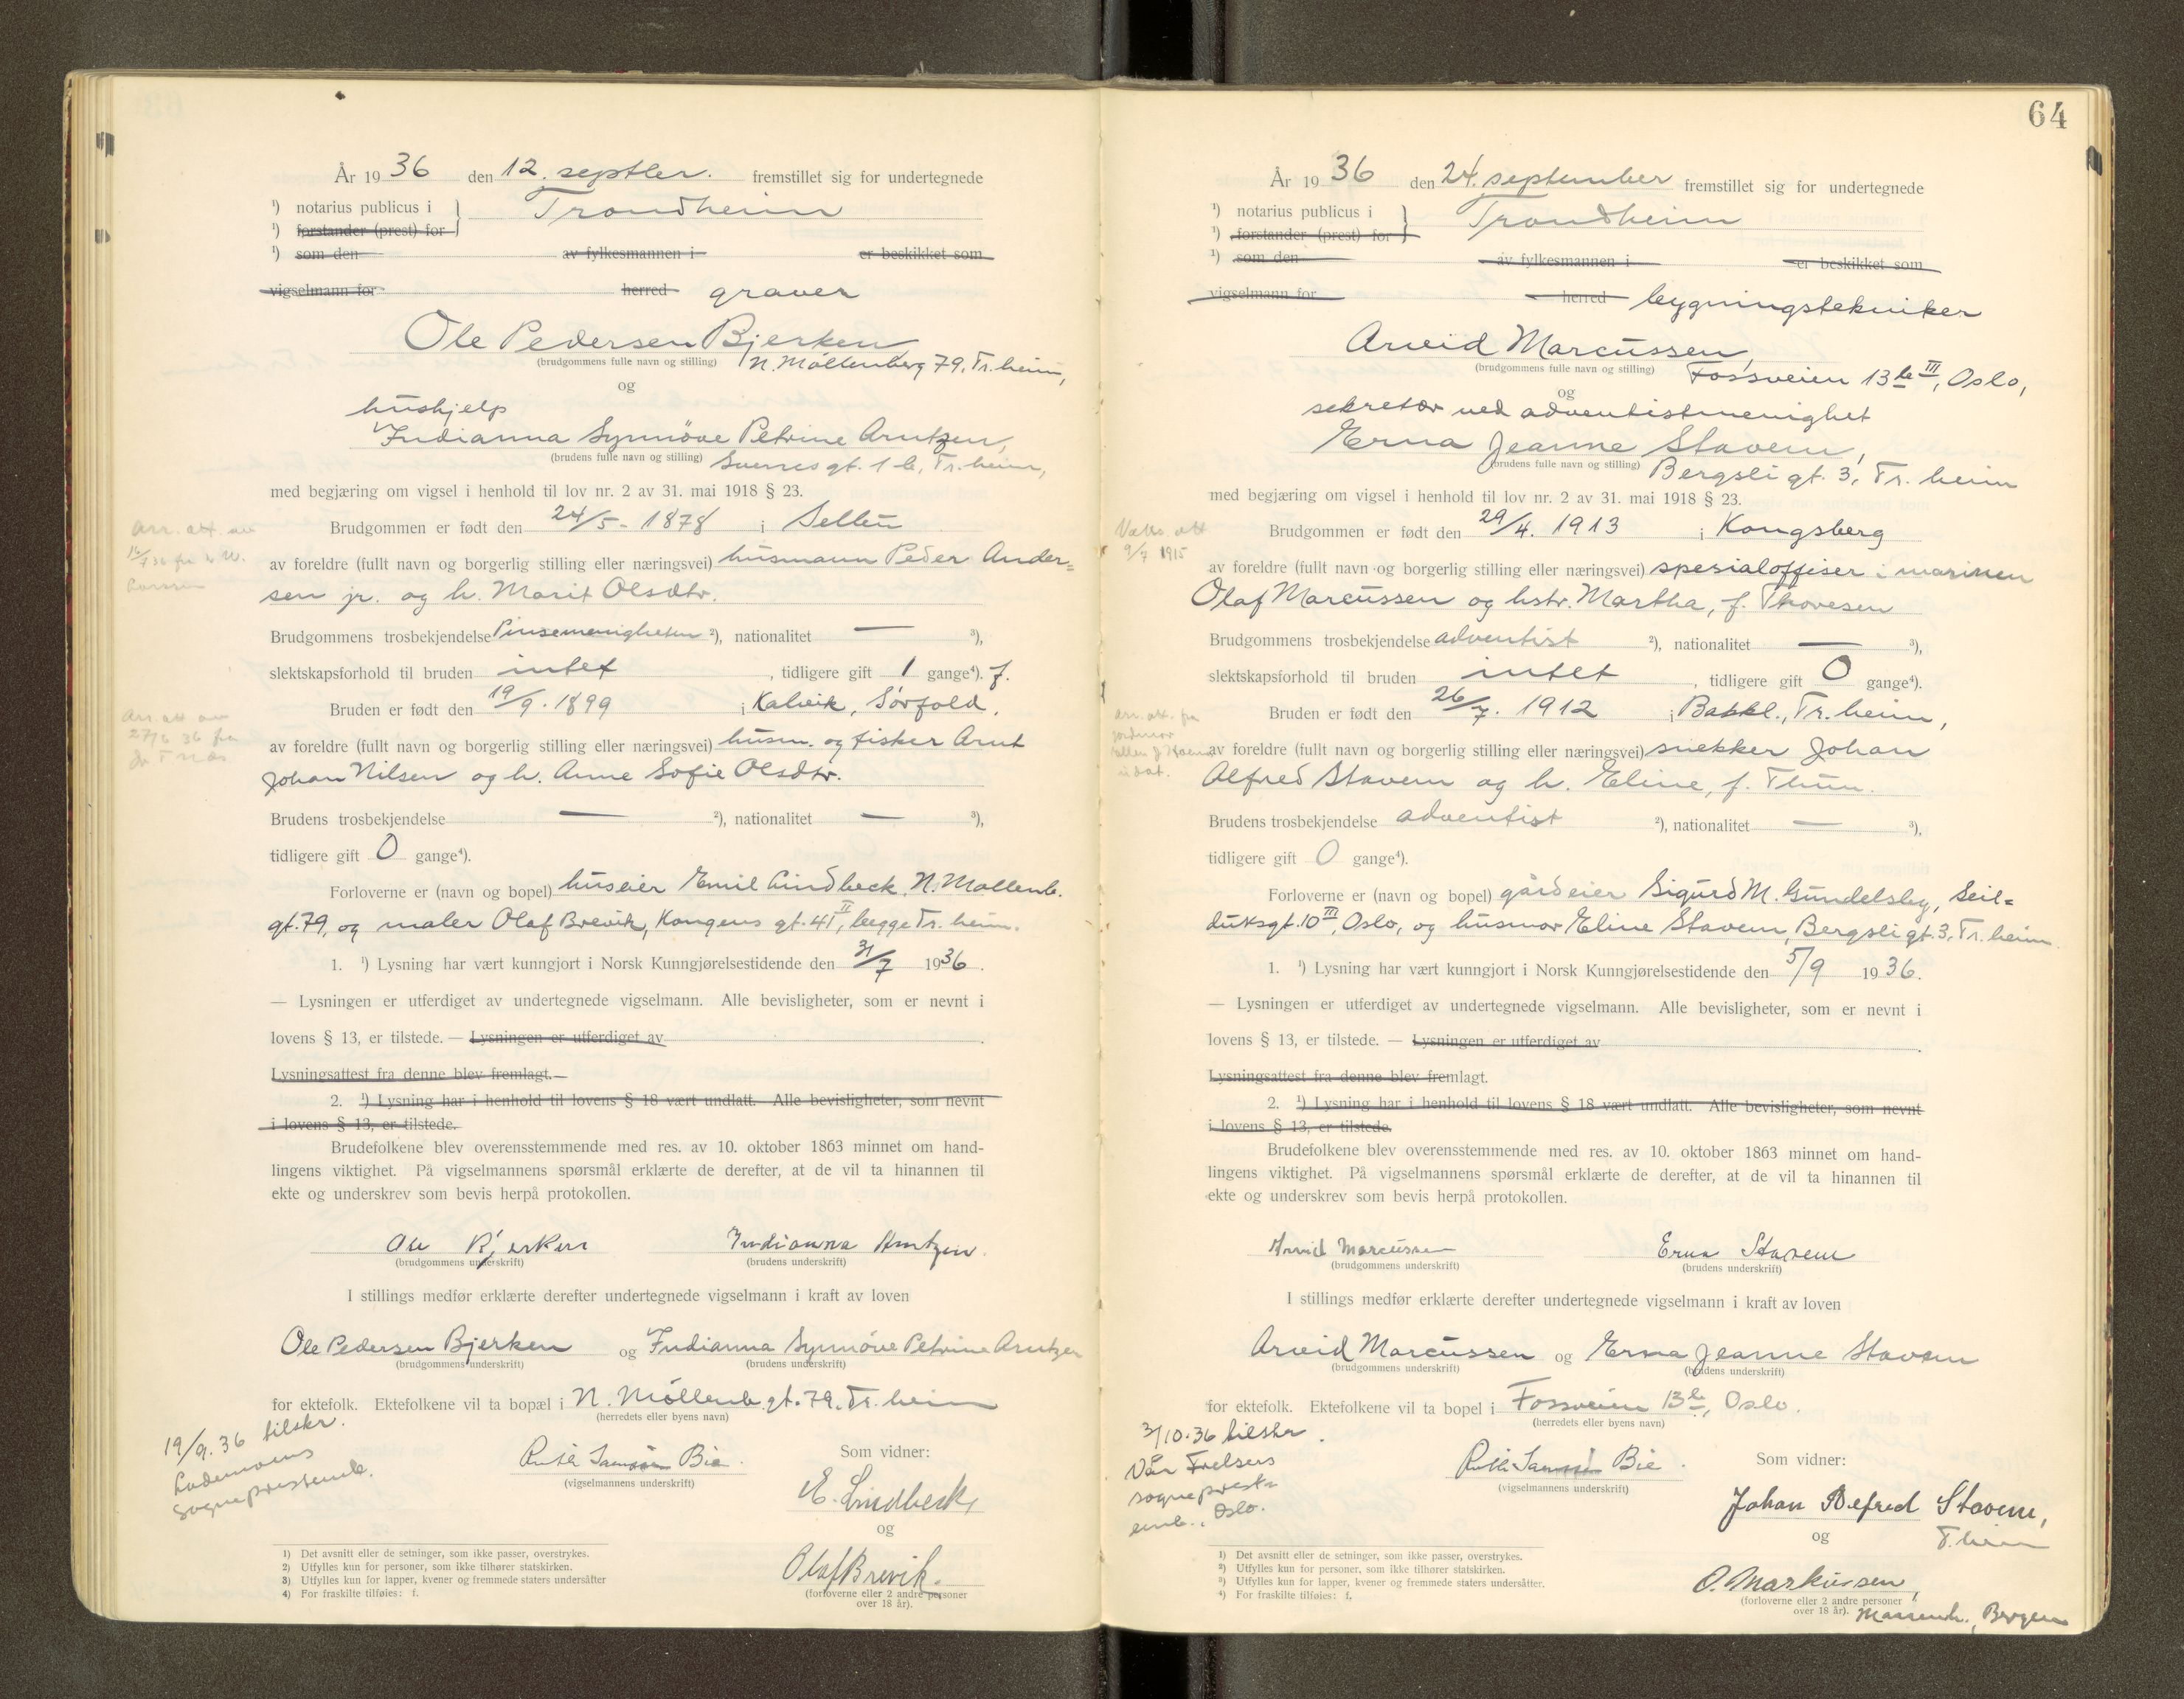 År 19 36 den 12. septber. fremstillet sig for undertegnede
¹) notarius publicus i Trondheim
¹) forstander (prest) for
¹) som den av fylkesmannen i er beskikket som
vigselmann for herred graver
Ole Pedersen Bjerken
(brudgommens fulle navn og stilling) N. Möllenberg 79, Tr.heim,
og
hushjelp
Indianna Synnöve Petrine Arntzen,
(brudens fulle navn og stilling) Sverres gt. 1 b, Tr.heim,
med begjæring om vigsel i henhold til lov nr. 2 av 31. mai 1918 § 23.
Brudgommen er født den 24/5 - 1878 i Selbu
av foreldre (fullt navn og borgerlig stilling eller næringsvei) husmann Peder Ander=
sen jr. og h. Marit Olsdtr.
Brudgommens trosbekjendelse Pinsemenigheten ²), nationalitet — ³),
slektskapsforhold til bruden intet , tidligere gift 1 gange⁴). f.
Bruden er født den 19/9. 1899 i Kalvik, Sörfold,
av foreldre (fullt navn og borgerlig stilling eller næringsvei) husm. og fisker Arnt
Johan Nilsen og h. Anne Sofie Olsdtr.
Brudens trosbekjendelse — ²), nationalitet — ³),
tidligere gift 0 gange⁴).
Forloverne er (navn og bopel) huseier Emil Lindbeck, N. Mollenb.
gt. 79, og maler Olaf Brevik, Kongens gt. 41 II, begge Tr.heim.
1. ¹) Lysning har vært kunngjort i Norsk Kunngjørelsestidende den 31/7 1936.
— Lysningen er utferdiget av undertegnede vigselmann. Alle bevisligheter, som er nevnt i
lovens § 13, er tilstede. — Lysningen er utferdiget av
Lysningsattest fra denne blev fremlagt.—
2. ¹) Lysning har i henhold til lovens § 18 vært undlatt. Alle bevisligheter, som nevnt
i lovens § 13, er tilstede.
Brudefolkene blev overensstemmende med res. av 10. oktober 1863 minnet om hand-
lingens viktighet. På vigselmannens spørsmål erklærte de derefter, at de vil ta hinannen til
ekte og underskrev som bevis herpå protokollen.
Ole Bjerken Indianna Arntzen.
(brudgommens underskrift) (brudens underskrift)
I stillings medfør erklærte derefter undertegnede vigselmann i kraft av loven
Ole Pedersen Bjerken og Indianna Synnöve Petrine Arntzen
(brudgommens underskrift) (brudens underskrift)
for ektefolk. Ektefolkene vil ta bopæl i N. Möllenb. gt. 79, Tr.heim
(herredets eller byens navn)
19/9.36 tilskr.
Lademoens
sogneprestemb.
Bie. Som vidner:
(vigselmannens underskrift)
E. Lindbeck,
og
Olaf Brevik.
(forloverne eller 2 andre personer
over 18 år).
1) Det avsnitt eller de setninger, som ikke passer, overstrykes.
2) Utfylles kun for personer, som ikke tilhører statskirken.
3) Utfylles kun for lapper, kvener og fremmede staters undersåtter
4) For fraskilte tilføies: f.
64
År 19 36 den 24. september fremstillet sig for undertegnede
¹) notarius publicus i Trondheim
¹) forstander (prest) for
¹) som den av fylkesmannen i er beskikket som
vigselmann for herred bygningstekniker
Arvid Marcussen,
(brudgommens fulle navn og stilling) Fossveien 13 b III, Oslo,
og
sekretær ved adventistmenighet
Erna Jeanne Stavem,
(brudens fulle navn og stilling) Bergsli gt. 3, Tr.heim
med begjæring om vigsel i henhold til lov nr. 2 av 31. mai 1918 § 23.
Brudgommen er født den 29/4. 1913 i Kongsberg
av foreldre (fullt navn og borgerlig stilling eller næringsvei) spesialoffiser i marinen
Olaf Marcussen og hstr. Martha, f. Thoresen
Brudgommens trosbekjendelse adventist ²), nationalitet — ³),
slektskapsforhold til bruden intet , tidligere gift 0 gange⁴).
Bruden er født den 26/7. 1912 i Bakkl., Tr.heim,
av foreldre (fullt navn og borgerlig stilling eller næringsvei) snekker Johan
Alfred Stavem og h. Eline, f. Thun.
Brudens trosbekjendelse adventist ²), nationalitet — ³),
tidligere gift 0 gange⁴).
Forloverne er (navn og bopel) gårdeier Sigurd M. Gundelsby, Seil=
duksgt. 10 III, Oslo, og husmor Eline Stavem, Bergsli gt. 3, Tr.heim.
1. ¹) Lysning har vært kunngjort i Norsk Kunngjørelsestidende den 5/9 1936.
— Lysningen er utferdiget av undertegnede vigselmann. Alle bevisligheter, som er nevnt i
lovens § 13, er tilstede. — Lysningen er utferdiget av
Lysningsattest fra denne blev fremlagt.
2. ¹) Lysning har i henhold til lovens § 18 vært undlatt. Alle bevisligheter, som nevnt
i lovens § 13, er tilstede.
Brudefolkene blev overensstemmende med res. av 10. oktober 1863 minnet om hand-
lingens viktighet. På vigselmannens spørsmål erklærte de derefter, at de vil ta hinannen til
ekte og underskrev som bevis herpå protokollen.
Arvid Marcussen Erna Stavem
(brudgommens underskrift) (brudens underskrift)
I stillings medfør erklærte derefter undertegnede vigselmann i kraft av loven
Arvid Marcussen og Erna Jeanne Stavem
(brudgommens underskrift) (brudens underskrift)
for ektefolk. Ektefolkene vil ta bopel i Fossveien 13 b, Oslo.
(herredets eller byens navn)
3/10.36 tilskr.
Vår Frelsers
sogneprest=
emb., Oslo.
Bie. Som vidner:
(vigselmannens underskrift)
Johan Alfred Stavem,
og T.heim
O. Markussen,
(forloverne eller 2 andre personer
over 18 år). Bergen
1) Det avsnitt eller de setninger, som ikke passer, overstrykes.
2) Utfylles kun for personer, som ikke tilhører statskirken.
3) Utfylles kun for lapper, kvener og fremmede staters undersåtter.
4) For fraskilte tilføies: f.